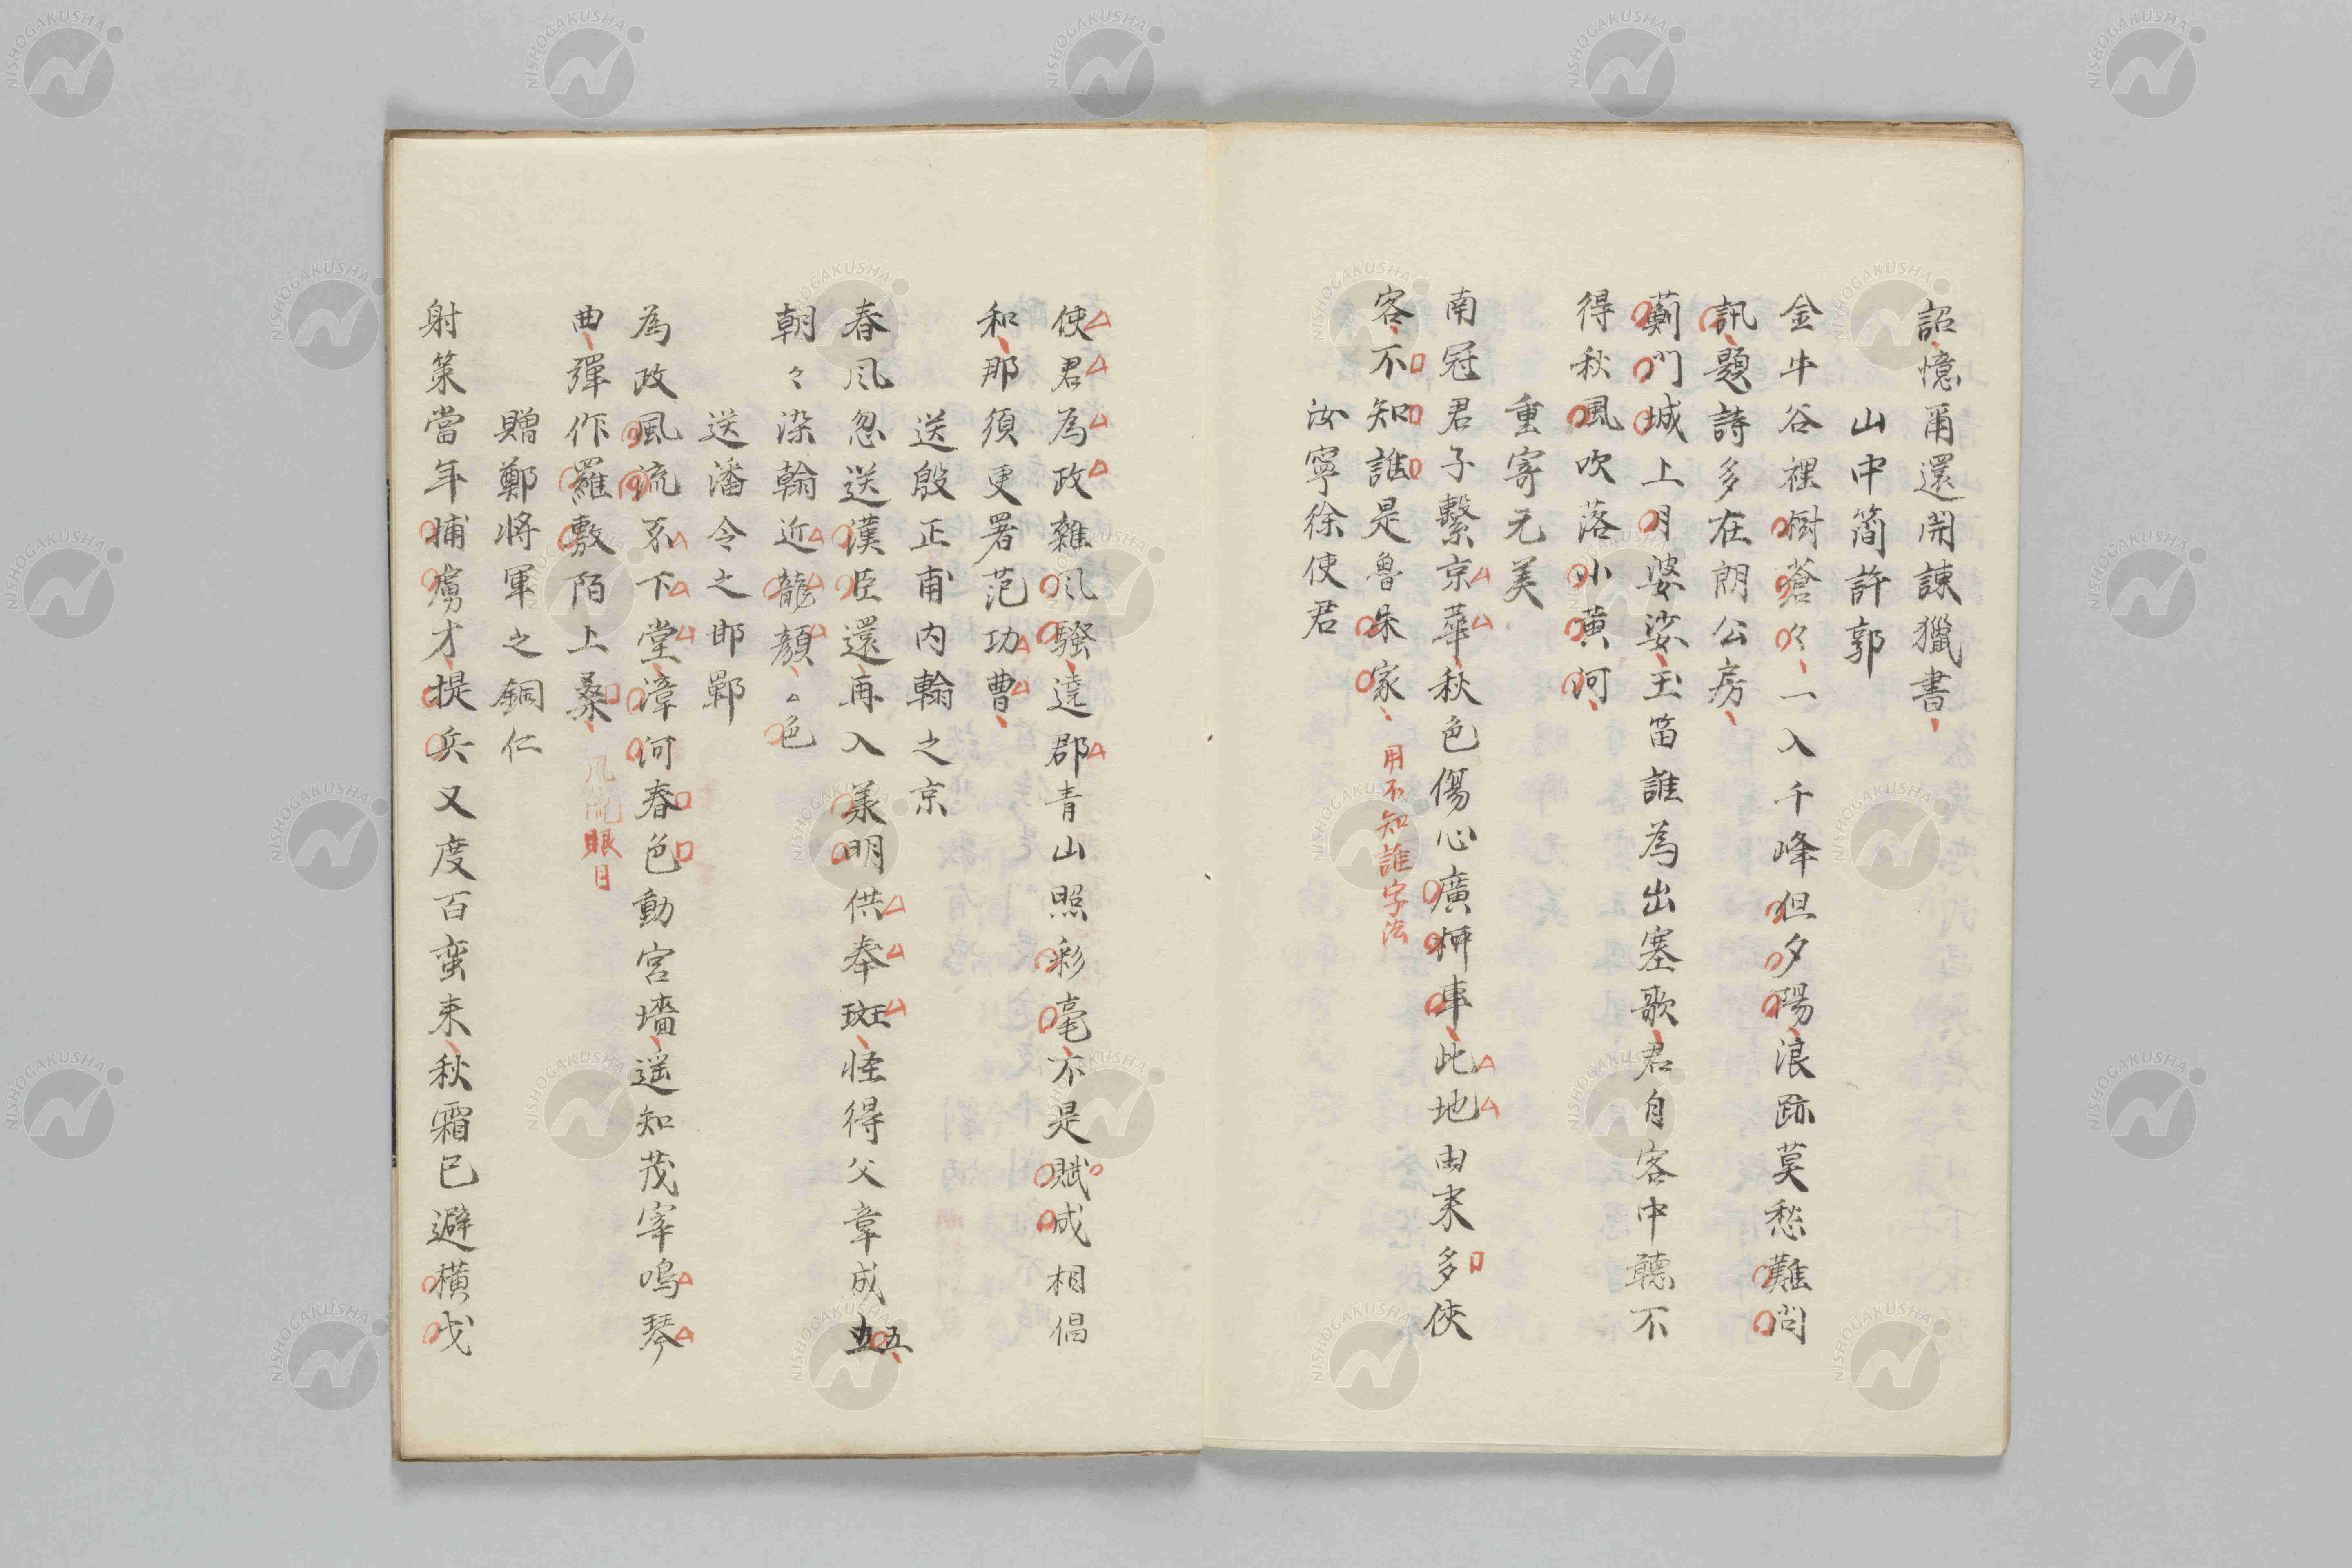 詔憶爾還開諫獵書
山中簡許郭
金牛谷裡樹蒼々一入千峰但夕陽浪跡莫愁難問
訊題詩多在朗公房
薊門城上月婆娑玉笛誰為出塞歌君自客中聽不
得秋風吹落小黄河
重寄元美
南冠君子繫京華秋色傷心廣柳車此地由来多俠
客不知誰是魯朱家
用不知誰字法
汝寧徐使君
使君為政雜風騒遶郡青山照彩毫不是賦成相倡
和那須更署范功曹
送殷正甫内翰之京
春風忽送漢臣還再入承明供奉班怪得父章成五
五
朝々染翰近龍顔色
送潘令之邯鄲
為政風流不下堂漳河春色動宮墻遥知茂宰鳴琴
曲彈作羅敷陌上桑
風流眼目
贈鄭将軍之銅仁
射策當年捕虜才提兵又度百蛮来秋霜已避横戈
NISHOGAKUSHA